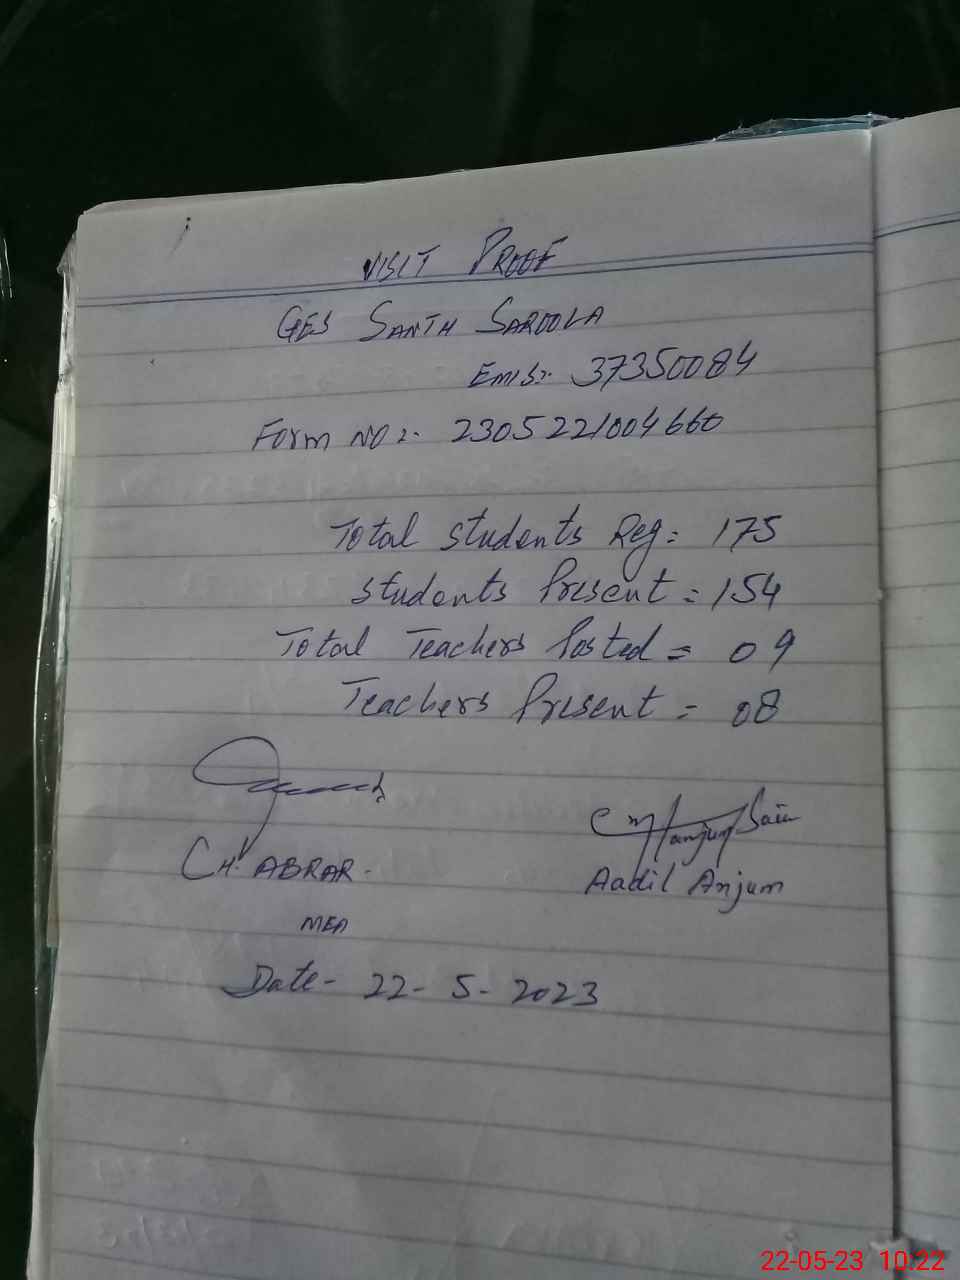 VISIT PROOF
GES SANTH SAROOLA
EMIS:- 37350084
Form NO:- 2305221004660
Total students Reg: 175
Students Present = 154
Total Teachers Posted = 09
Teachers Present = 08
CH. ABRAR.
Aadil Anjum
MEA
Date- 22-5-2023
22-05-23 10:22